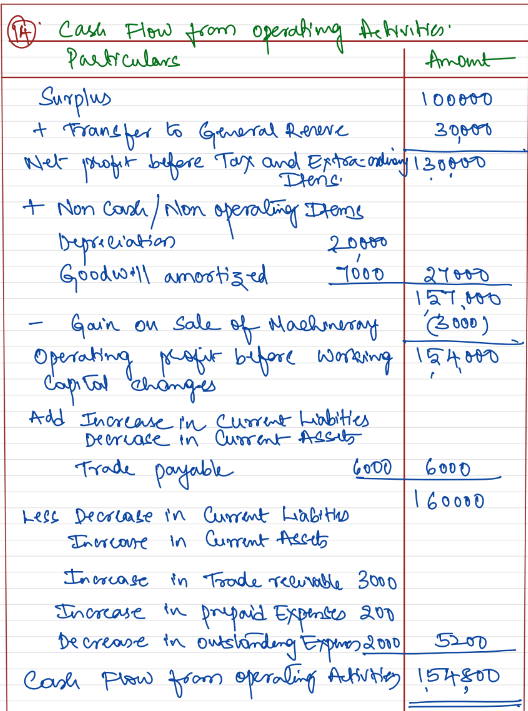 14. Cash Flow from operating Activities.
Particulars Amount
Surplus 100000
+ Transfer to General Reserve 30,000
Net profit before Tax and Extra-ordinary 130000
Items.
+ Non Cash/Non operating Items
Depreciation 20,000
Goodwill amortized 7000 27000
157,000
- Gain on Sale of Machineray (3000)
Operating profit before working 154,000
Capital changes
Add Increase in Current Liabities
Decrease in Current Assets
Trade payable 6000 6000
160000
Less Decrease in Current Liabities
Increase in Current Assets
Increase in Trade receivable 3000
Increase in prepaid Expenses 200
Decrease in outstanding Expenses 2000 5200
Cash Flow from operating Activities 154800